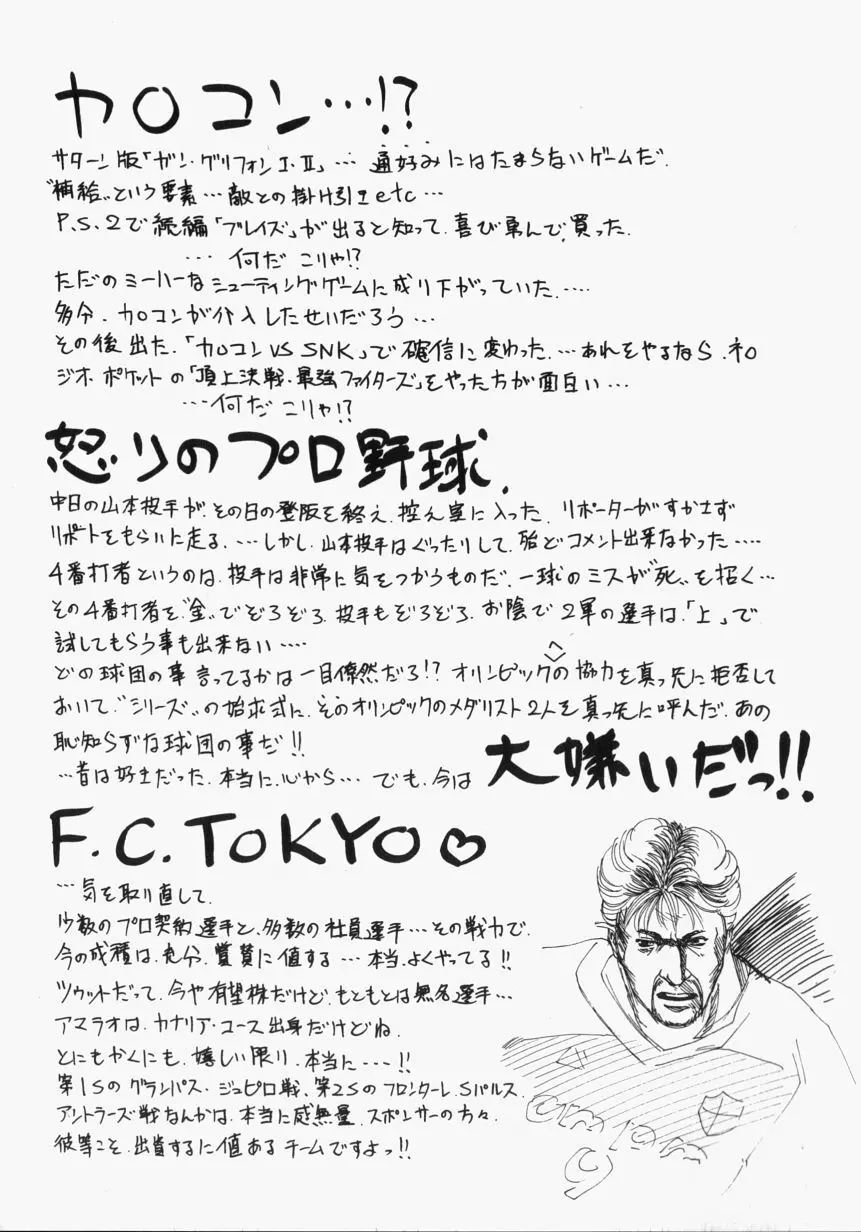 カロコン…!?
サターン版「ガン・グリフォンI・II」… 通好みにはたまらないゲームだ.
"補給"という要素…敵との掛け引きetc…
P.S.2で続編「ブレイズ」が出ると知って.喜び勇んで,買った.
…何だ こりゃ!?
ただのミーハーなシューティングゲームに成り下がっていた.…
多分.カロコンが介入したせいだろう…
その後出た.「カロコンVS SNK」で確信に変わった.…あれをやるなら.ネロ
ジオ.ポケットの「頂上決戦.最強ファイターズ」をやった方が面白い…
…何だ こりゃ!?
怒りのプロ野球.
中日の山本投手が,その日の登版を終え.控え室に入った.リポーターがすかさず
リポートをもらいに走る.…しかし.山本投手はぐったりして.殆どコメント出来なかった……
4番打者というのは.投手は非常に気をつかうものだ.一球のミスが"死"を招く…
その4番打者を"金"でぞろぞろ.投手もぞろぞろ.お陰で2軍の選手は.「上」で
試してもらう事も出来ない……
どの球団の事言ってるかは一目僚然だろ!?オリンピックへの協力を真っ先に拒否して
おいて."シリーズ"の始求式に.そのオリンピックのメダリスト2人を真っ先に呼んだ.あの
恥知らずな球団の事だ!!
…昔は好きだった.本当に.心から…でも.今は 大嫌いだっ!!
F.C.TOKYO♡
…気を取り直して.
少数のプロ契約選手と.多数の社員選手…その戦力で.
今の成種は.充分.賞賛に値する…本当.よくやってる!!
ツゥットだって.今や有望株だけど.もともとは無名選手…
アマラオは.カナリア・ユース出身だけどね.
とにもかくにも.嬉しい限り.本当に…!!
第1Sのグランパス・ジュビロ戦、第2Sのフロンターレ.Sパルス.
アントラーズ戦なんかは.本当に感無量.スポンサーの方々.
彼等こそ.出資するに値あるチームですよっ!!
am pm
9